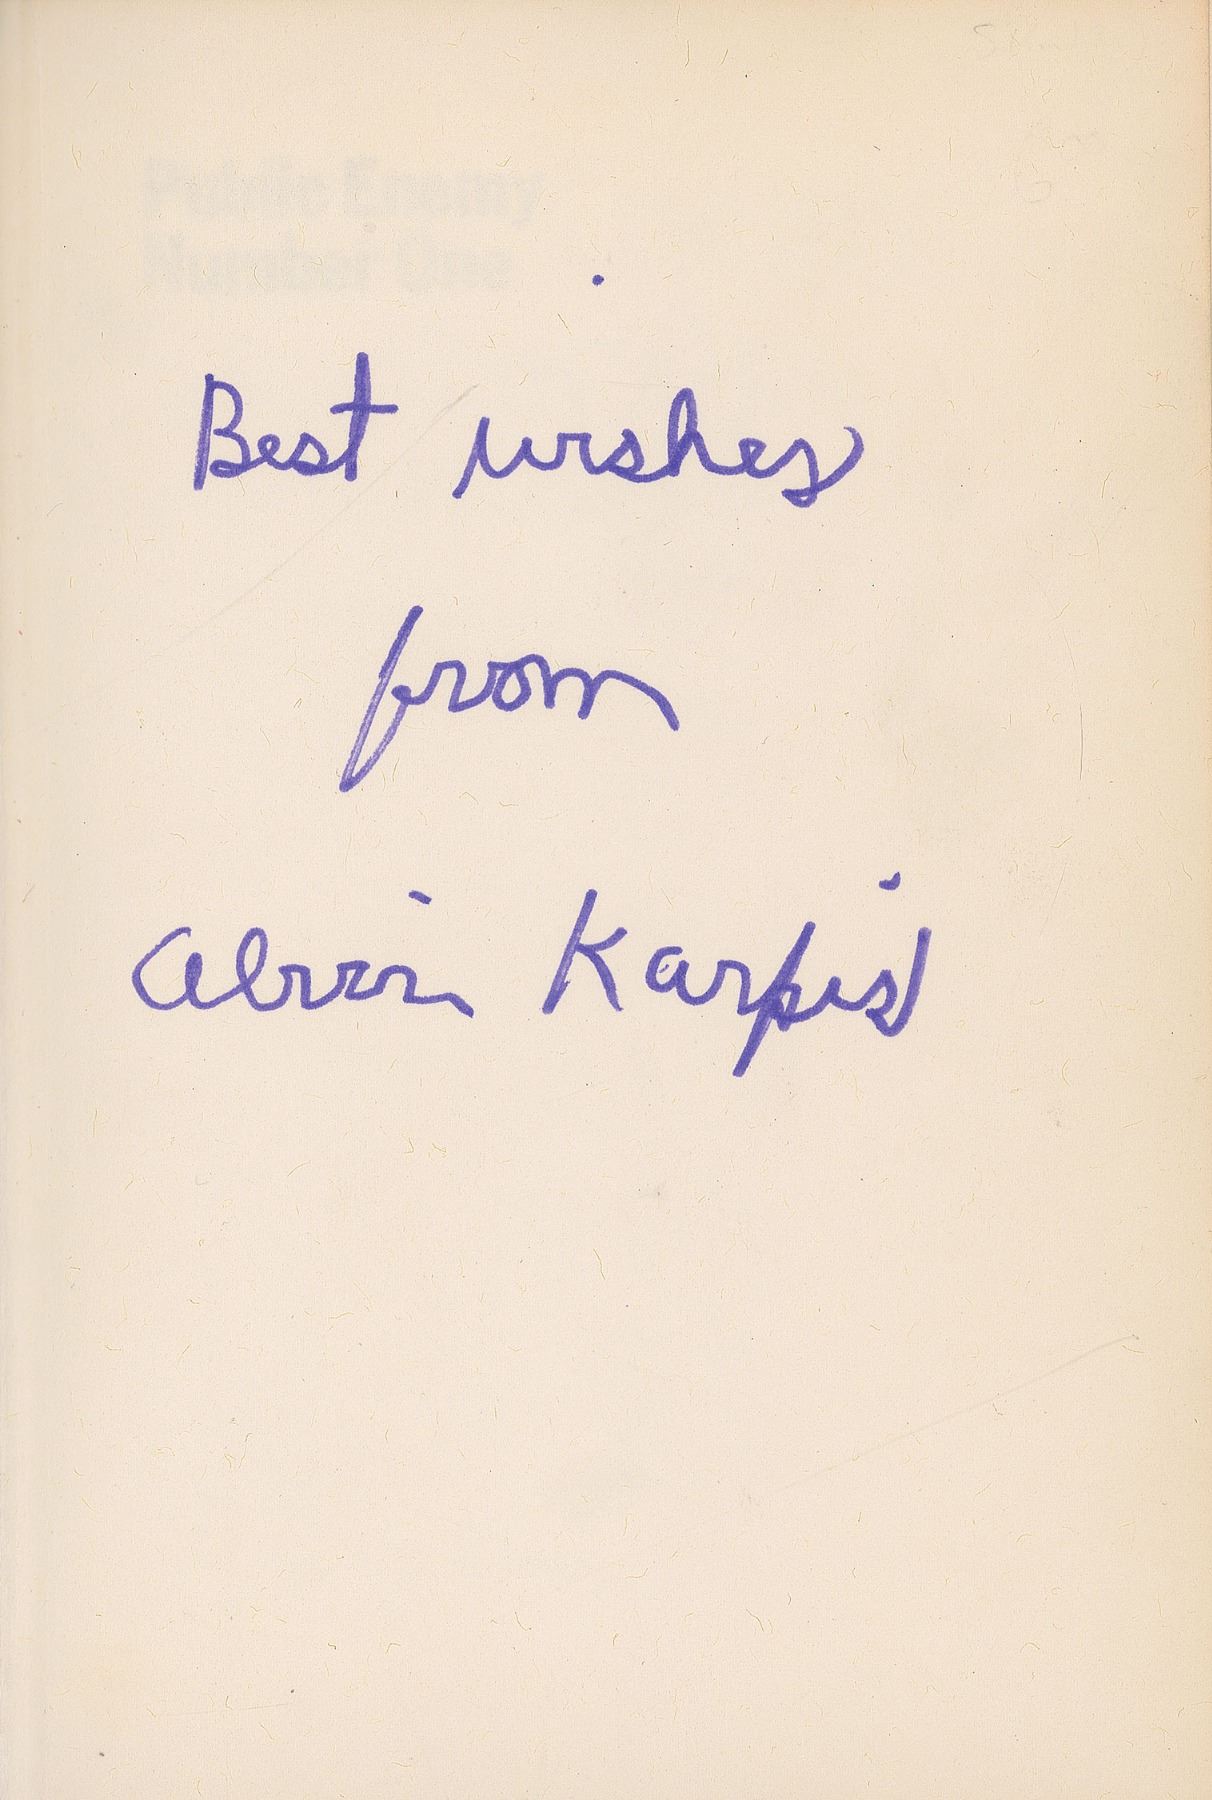 Public Enemy
Number One
Best wishes
from
Alvin Karpis